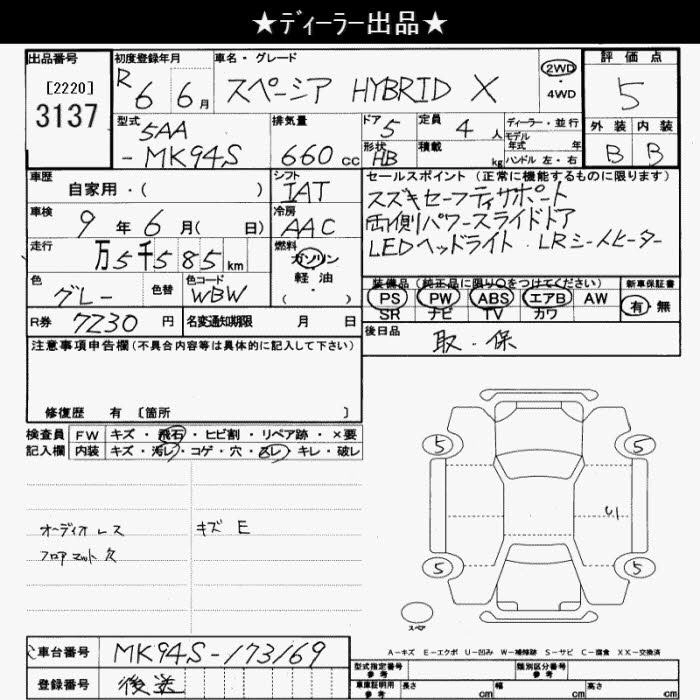 ★ディーラー出品★
出品番号
[2220]
3137
初度登録年月
R 6 6月
車名・グレード
スペーシア HYBRID X
2WD
・
4WD
評価点
5
型式
5AA
-MK94S
排気量
660cc
ドア
5
定員
4人
形状
HB
積載
kg
ディーラー・並行
モデル
年式 年
ハンドル 左・右
外装 内装
B B
車歴
自家用・( )
シフト
IAT
セールスポイント (正常に機能するものに限ります)
スズキセーフティサポート
両側パワースライドドア
LEDヘッドライト・LRシートヒーター
車検
9年6月( 日)
冷房
AAC
走行
万5千585km
燃料
ガソリン
軽油
( )
色
グレー
色替
色コード
WBW
装備品 (純正品に限り○をつけてください)
PS PW ABS エアB AW
SR ナビ TV カワ
新車保証書
有・無
R券
7230円
名変通知期限 月 日
後日品
取・保
注意事項申告欄(不具合内容等は具体的に記入して下さい)
修復歴 有 〔箇所 〕
検査員
記入欄
FW キズ・飛石・ヒビ割・リペア跡・×要
内装 キズ・汚レ・コゲ・穴・スレ・キレ・破レ
オーディオレス
フロアマット欠
キズ E
5 5
U1
5 5
スペア
A-キズ E-エクボ U-凹み W-補修跡 S-サビ C-腐食 XX-交換済
車台番号
MK94S-173169
登録番号
後送
型式指定番号
参考
類別区分番号
参考
車庫証明用
参考
長さ cm
幅 cm
高さ cm